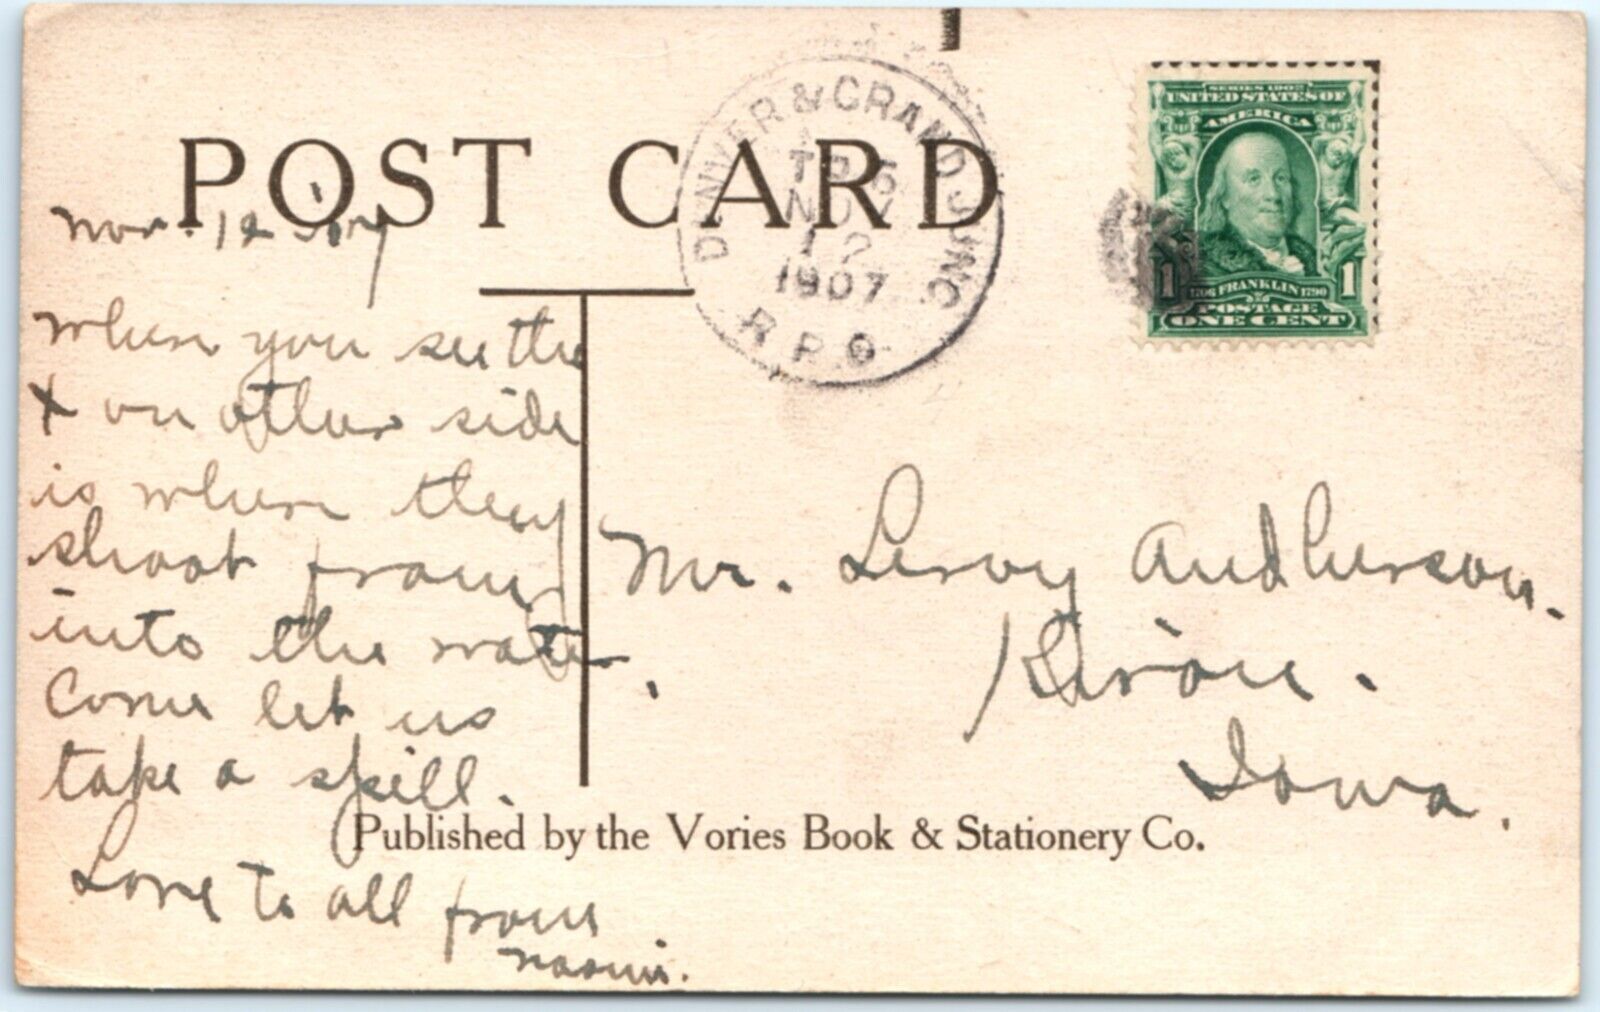 POST CARD
DENVER & GRAND JUNC.
TR 5
NOV
12
1907
R.P.O.
SERIES 1902
UNITED STATES OF
AMERICA
1 1
1706 FRANKLIN 1790
POSTAGE
ONE CENT
Nov. 12 '07
When you see the
x on other side
is where they
shoot from
into the water.
Come let us
take a spill.
Love to all from
Naomi.
Mr. Leroy Andherson.
Kiron.
Iowa.
Published by the Vories Book & Stationery Co.